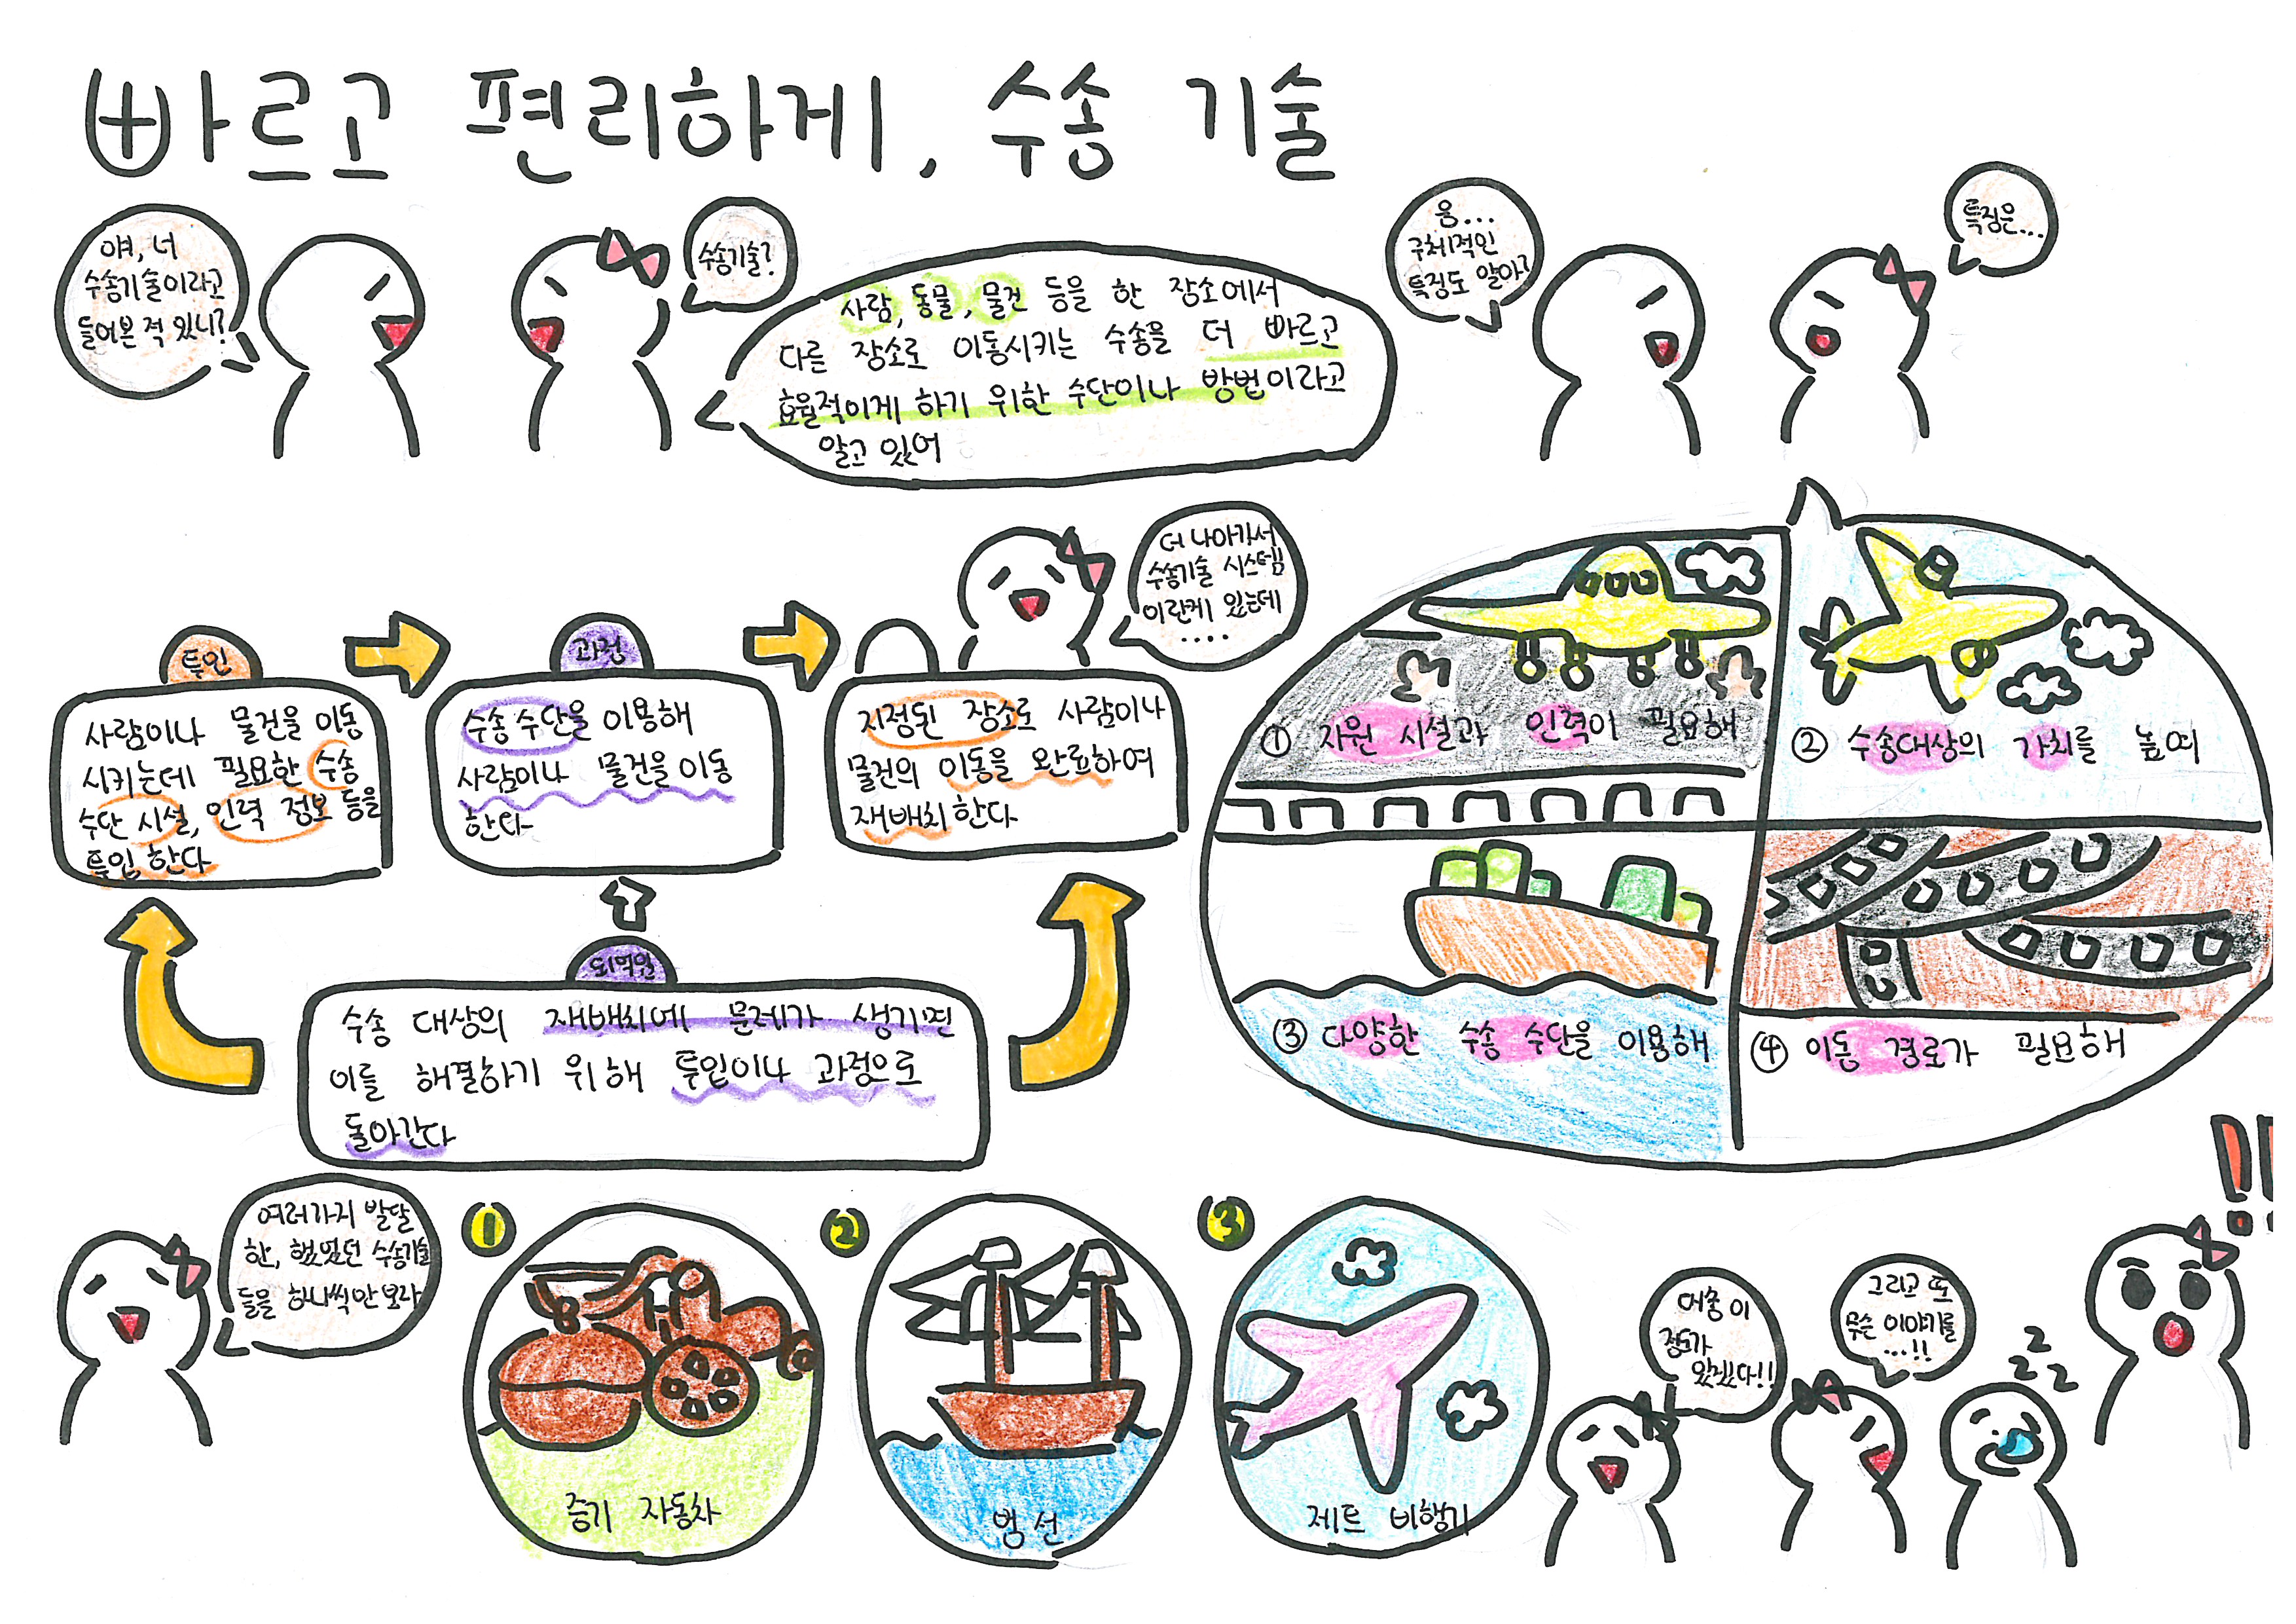 빠르고 편리하게, 수송 기술
얘, 너
수송기술이라고
들어본 적 있니?
수송기술?
사람, 동물, 물건 등을 한 장소에서
다른 장소로 이동시키는 수송을 더 빠르고
효율적이게 하기 위한 수단이나 방법이라고
알고 있어
음...
구체적인
특징도 알아?
특징은...
① 자원 시설과 인력이 필요해
② 수송대상의 가치를 높여
③ 다양한 수송 수단을 이용해
④ 이동 경로가 필요해
더 나아가서
수송기술 시스템
이란게 있는데
....
투입
사람이나 물건을 이동
시키는데 필요한 수송
수단 시설, 인력 정보 등을
투입 한다
과정
수송 수단을 이용해
사람이나 물건을 이동
한다
지정된 장소로 사람이나
물건의 이동을 완료하여
재배치 한다
되먹임
수송 대상의 재배치에 문제가 생기면
이를 해결하기 위해 투입이나 과정으로
돌아간다
여러가지 발달
한, 했었던 수송기술
들을 하나씩만 보자
1
증기 자동차
2
범선
3
제트 비행기
대충 이
정도가
있겠다!!
그리고 또
무슨 이야기를
...!!
zzz
!!